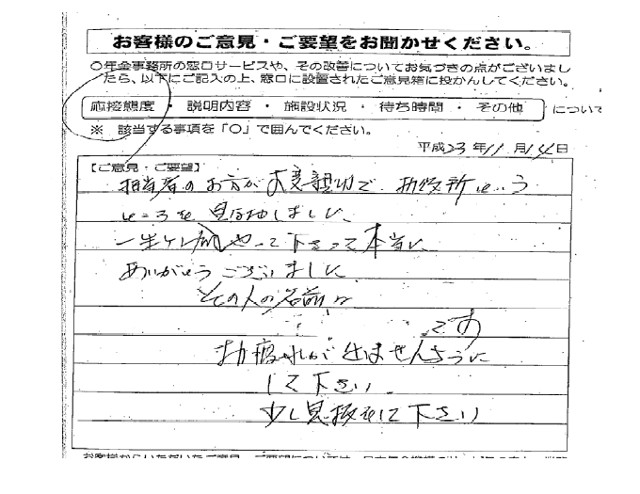 お客様のご意見・ご要望をお聞かせください。
○年金事務所の窓口サービスや、その改善についてお気づきの点がございまし
たら、以下にご記入の上、窓口に設置されたご意見箱に投かんしてください。
応接態度 ・ 説明内容 ・ 施設状況 ・ 待ち時間 ・ その他 について
※ 該当する事項を「〇」で囲んでください。
平成23年11月14日
【ご意見・ご要望】
担当者のお方が大変親切で、お役所という
ところを見直しました
一生ケン命やって下さって本当に
ありがとうございました
その人の名前は
です
お疲れが出ませんように
して下さい
少し見 下さい